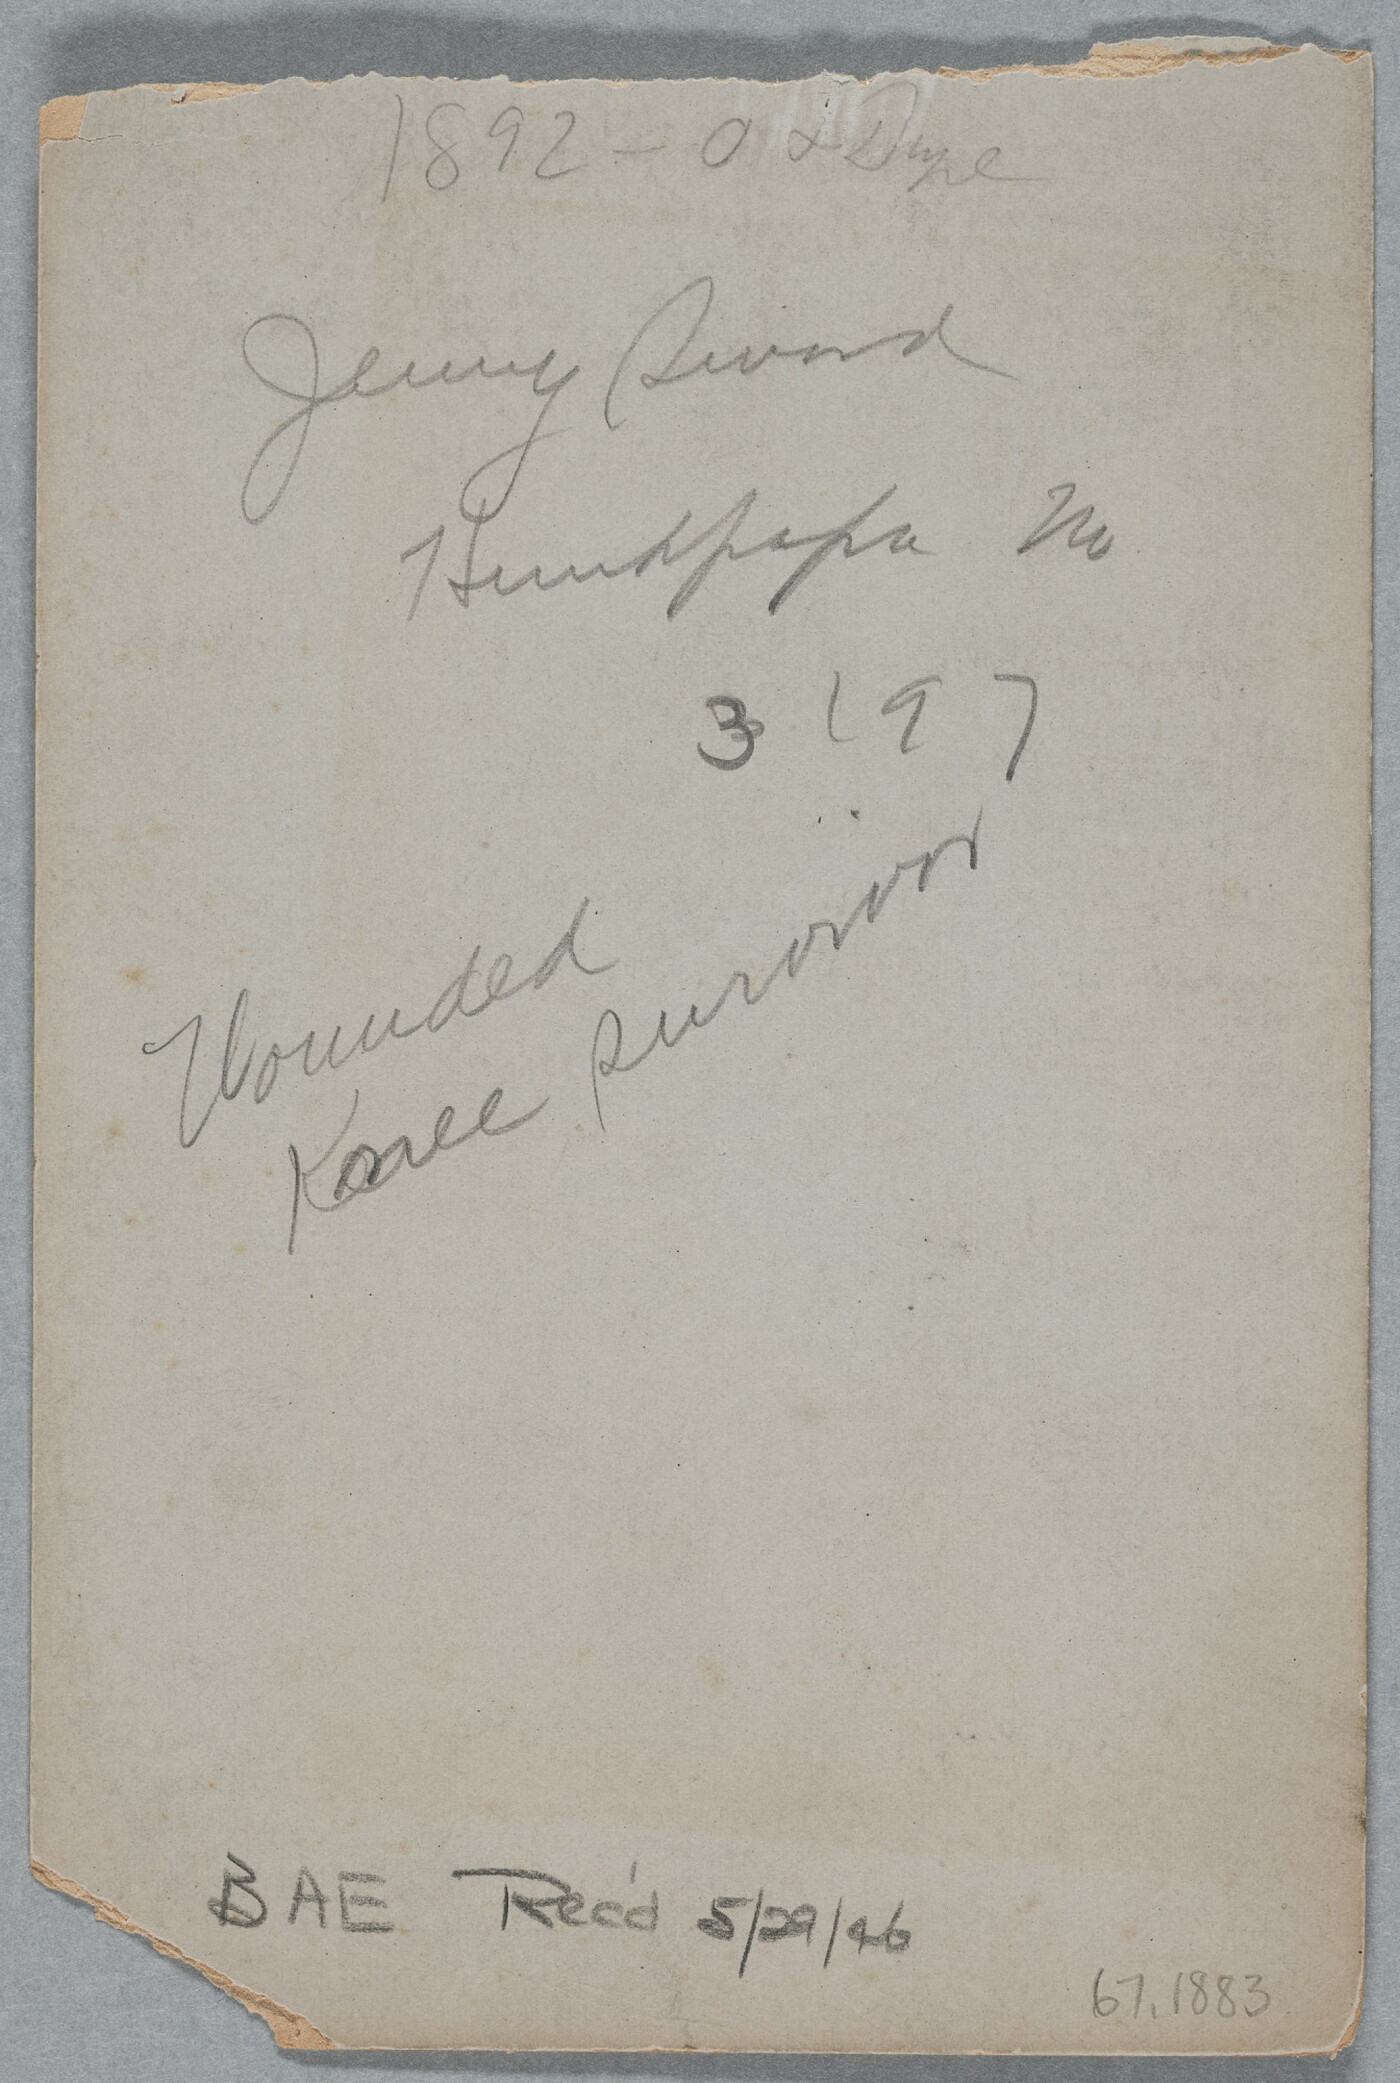 1892 - O & Dupe
Jenny Sword
Hunkpapa No
3197
Wounded
Knee survivor
BAE Rec'd 5/29/46
67.1883